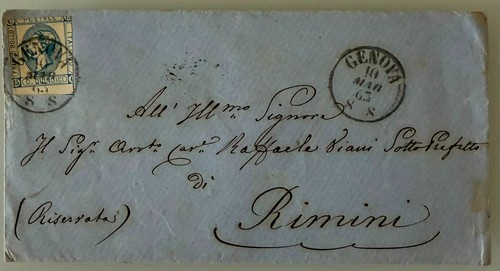 GENOVA
10
MAG
63
8 S
GENOVA
63
8 S
All' Ill.mo Signore
Il Sig.r Avv.to Cav.r Raffaele Viani Sotto Prefetto
di
(Riservata)
Rimini